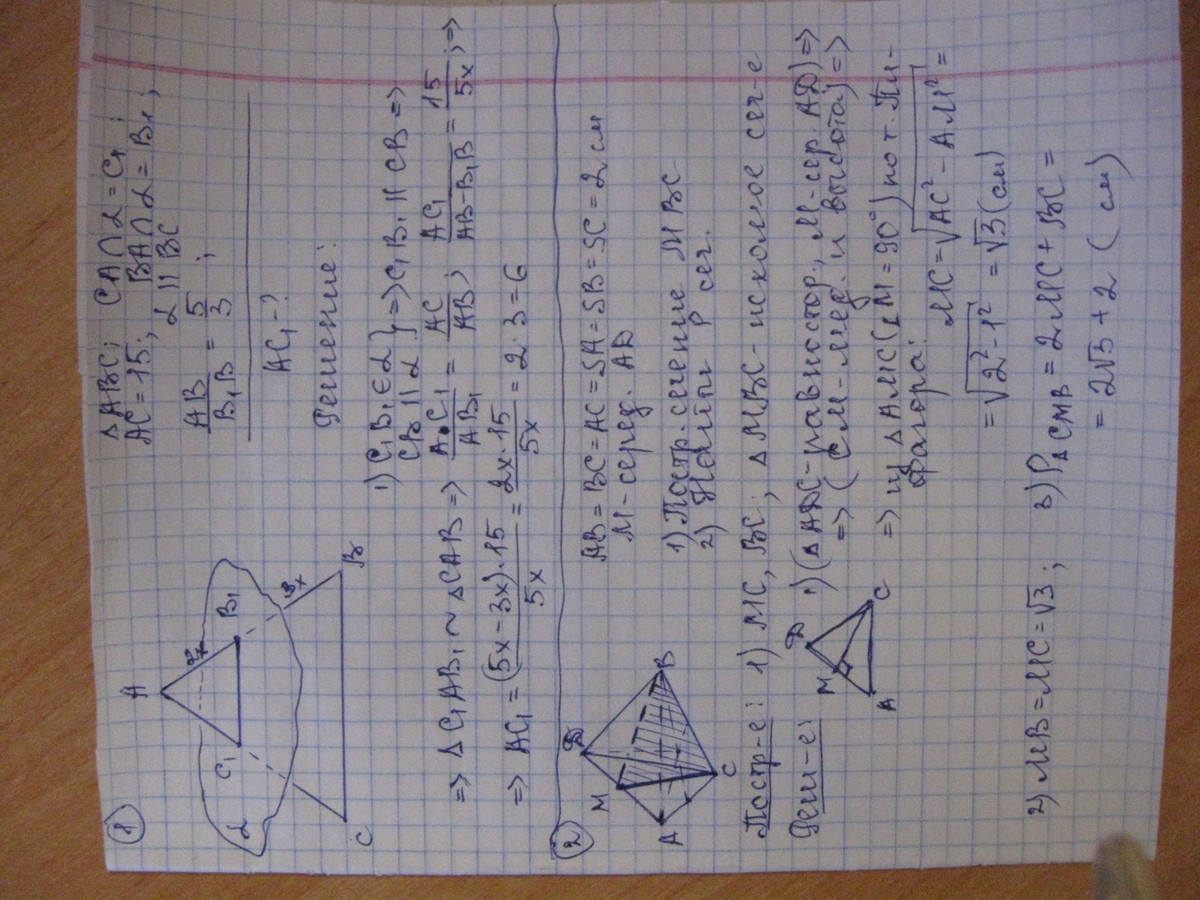 1
△ABC; CA∩α = C₁ ;
AC = 15; BA∩α = B₁ ;
α || BC
AB / B₁B = 5 / 3 ;
AC₁ - ?
A
2x
C₁
B₁
α
3x
C
B
Решение:
1) C₁B₁ ∈ α } => C₁B₁ || CB =>
CB || α
=> △C₁AB₁ ~ △CAB => AC₁ / AB₁ = AC / AB ; AC₁ / AB-B₁B = 15 / 5x ; =>
=> AC₁ = (5x - 3x)·15 / 5x = 2x·15 / 5x = 2·3 = 6
2
D
M
A
B
C
AB = BC = AC = SA = SB = SC = 2 см
M - серед. AD
1) Постр. сечение MBC
2) Найти P сеч.
Постр-е: 1) MC, BC; △MBC - искомое сеч-е
Реш-е:
D
M
A
C
1) (△ADC - равностор., M - сер. AD) =>
=> (CM - мед. и высота) =>
=> из △AMC (∠M = 90°) по т. Пи-
фагора:
MC = √(AC² - AM²) =
= √(2² - 1²) = √3 (см)
2) MB = MC = √3 ; 3) P△CMB = 2MC + BC =
= 2√3 + 2 (см)